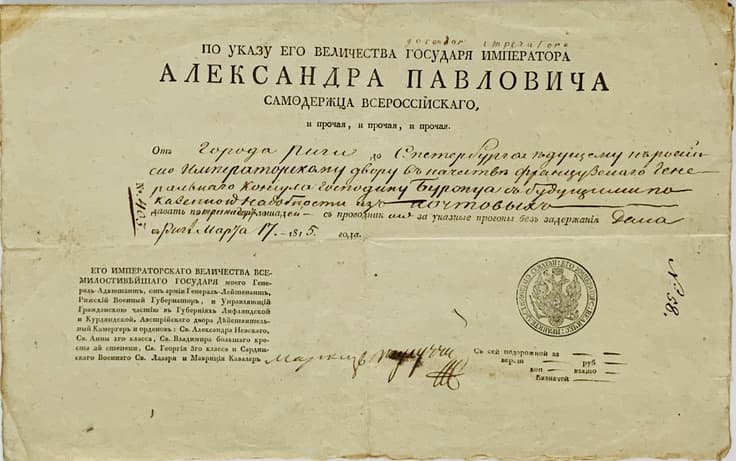 gosoudar imperatora
ПО УКАЗУ ЕГО ВЕЛИЧЕСТВА ГОСУДАРЯ ИМПЕРАТОРА
АЛЕКСАНДРА ПАВЛОВИЧА
САМОДЕРЖЦА ВСЕРОССІЙСКАГО,
и прочая, и прочая, и прочая.
Отъ Города Риги до С.петербурга ѣдущему къ россій
ско Императорскому двору въ качествѣ французскаго Гене
ральнаго Консула Господину съ будущими по
казенной надобности изъ почтовыхъ
давать по лошадей съ проводникомъ за указные прогоны безъ задержанія Дана
въ Ригѣ Марта 17. 1815 года.
№ 1403
ЕГО ИМПЕРАТОРСКАГО ВЕЛИЧЕСТВА ВСЕ-
МИЛОСТИВѢЙШАГО ГОСУДАРЯ моего Гене-
ралъ-Адъютантъ, отъ арміи Генералъ-Лейтенантъ,
Рижскій Военный Губернаторъ, и Управляющій
Гражданскою частью въ Губерніяхъ Лифляндской
и Курляндской, Австрійскаго двора Дѣйствитель-
ный Камергеръ и орденовъ: Св. Александра Невскаго,
Св. Анны 1го класса, Св. Владимира большаго кре-
ста 2й степени, Св. Георгія 3го класса и Сардин-
скаго Военнаго Св. Лазаря и Маврикія Кавалеръ
Маркиз Паулуччи
№ 58.
Съ сей подорожной за
верстъ руб
коп взято
Казначей